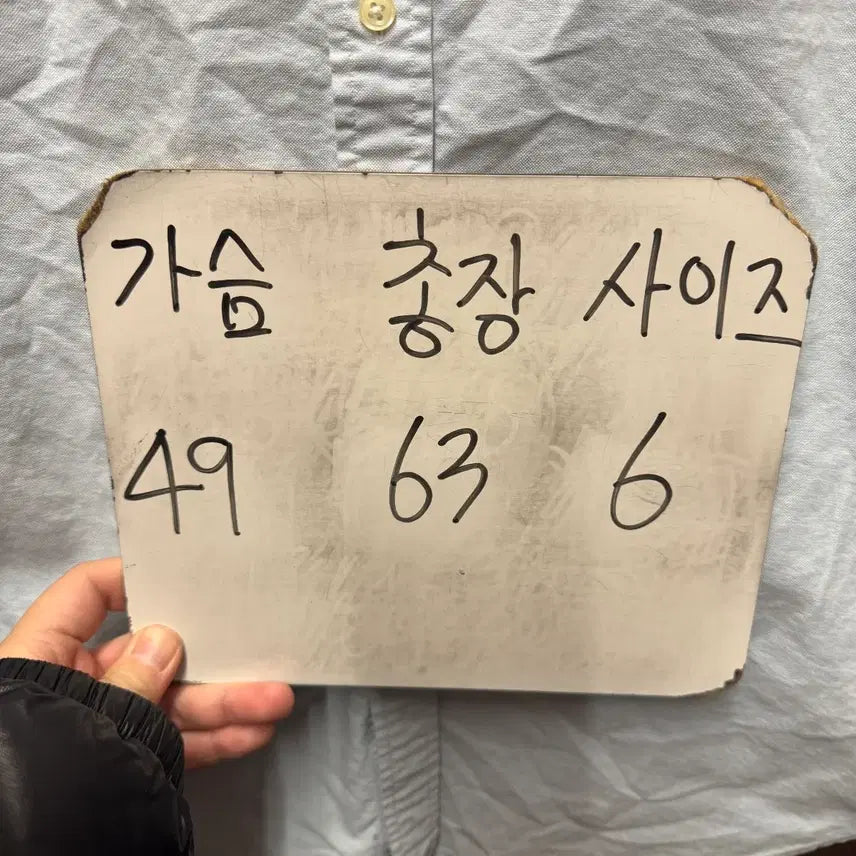 가슴 총장 사이즈
49 63 6